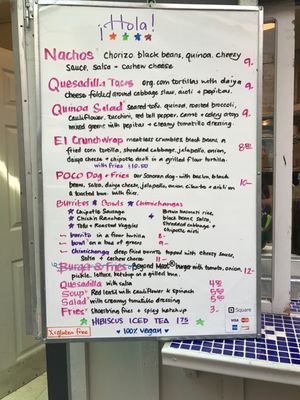 ¡Hola!
Nachos* chorizo, black beans, quinoa, cheezy
sauce, salsa + cashew cheese 9-
Quesadilla Tacos org. corn tortillas with daiya
cheese folded around cabbage slaw, aioli + pepitas. 9-
Quinoa Salad* seared tofu, quinoa, roasted broccoli,
cauliflower, zucchini, red bell pepper, carrot + celery atop
mixed greens with pepitas + creamy tomatillo dressing. 9
El Crunchwrap meatless crumbles, black beans, a
fried corn tortilla, shredded cabbage, jalapeño, onion,
daiya cheese + chipotle aioli in a grilled flour tortilla 8.50
with fries $10.50
Poco Dog + Fries our Sonoran dog - with bacon, black
beans, salsa, daiya cheese, jalapeño, onion, cilantro + aioli on
a toasted bun w/ fries. 10-
Burritos * Bowls * Chimichangas
* Chipotle Sausage
* Chick'n Ranchero
* Tofu + Roasted Veggies
+ Brown basmati rice,
black beans, salsa,
shredded cabbage +
chipotle aioli
burrito in a flour tortilla 8-
bowl on a bed of greens 9-
chimichanga deep fried burrito, topped with cheezy sauce,
salsa + cashew cheese 11-
Burger & Fries Beyond Meat burger with tomato, onion,
pickle, lettuce, ketchup on a grilled bun. 12-
Quesadilla with salsa 4.50
Soup* Red lentil with cauliflower & spinach 5.50
Salad* with creamy tomatillo dressing 5.50
Fries* Shoestring fries + spicy ketchup 3-
* HIBISCUS ICED TEA 1.75 *
Square
VISA
*=gluten free
♥ 100% vegan ♥